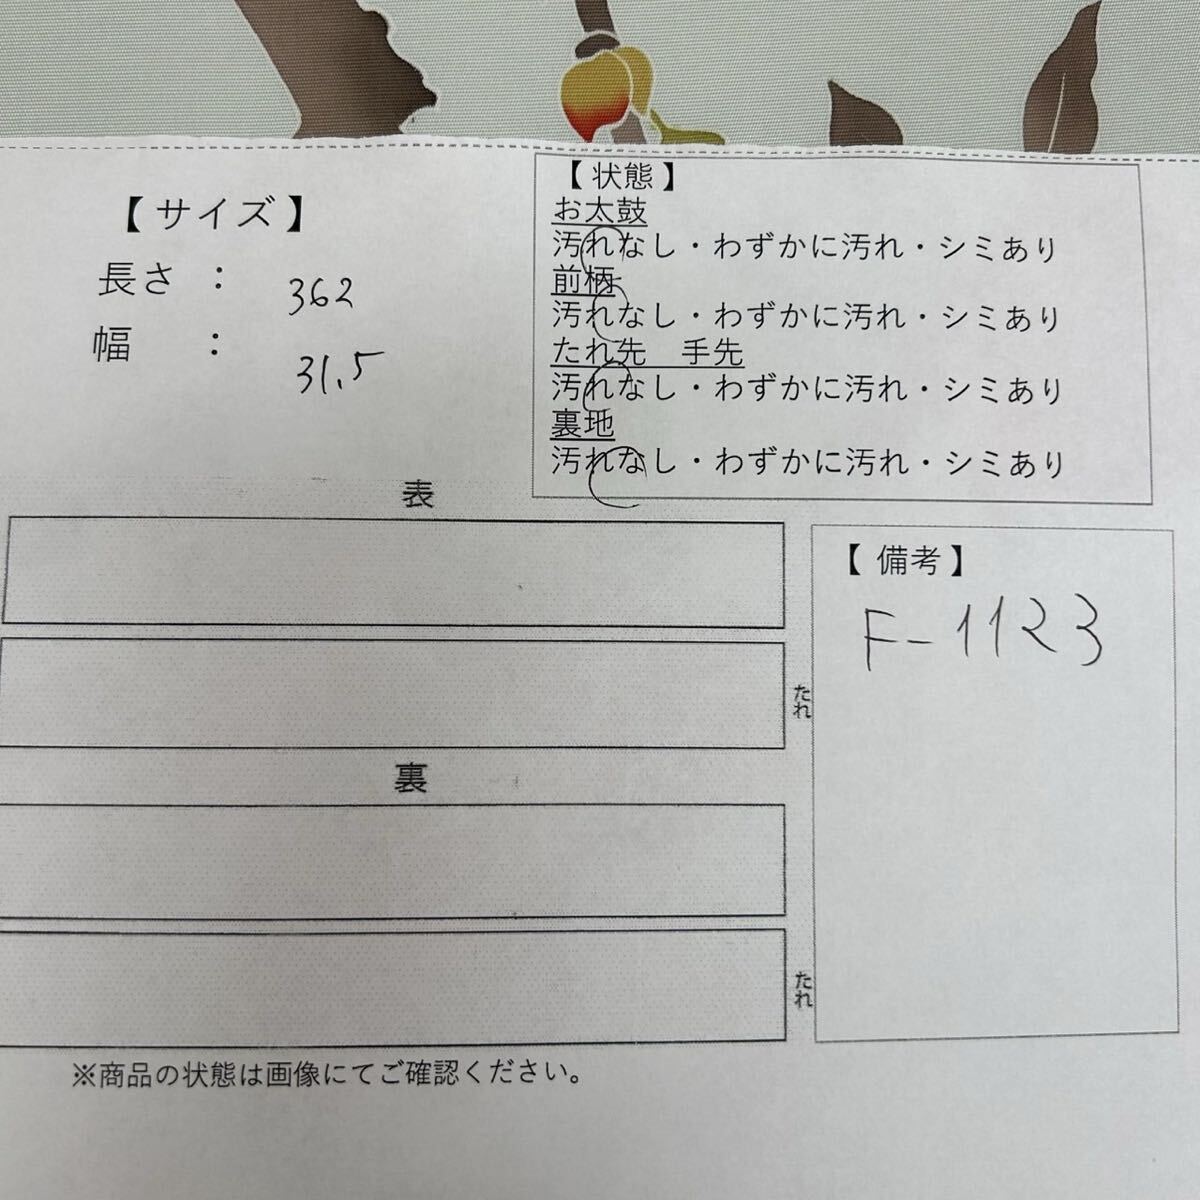 【 サイズ 】
長さ : 362
幅 : 31.5
【 状態 】
お太鼓
汚れなし・わずかに汚れ・シミあり
前柄
汚れなし・わずかに汚れ・シミあり
たれ先　手先
汚れなし・わずかに汚れ・シミあり
裏地
汚れなし・わずかに汚れ・シミあり
表
たれ
裏
たれ
【 備考 】
F-1123
※商品の状態は画像にてご確認ください。